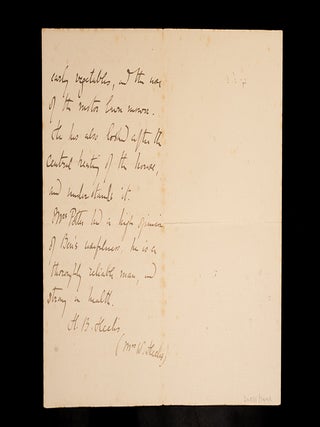 early vegetables, and the use
of the motor lawn mower.
He has also looked after the
central heating of the house,
and understands it.
Mrs Potter had a high opinion
of Ben's usefulness. he is a
thoroughly reliable man, and
strong in health.
H. B. Heelis.
(Mrs W. Heelis)